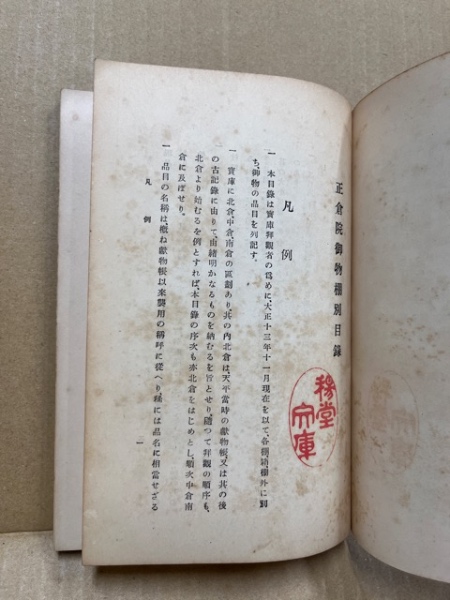 正倉院御物棚別目錄
凡例
一 本目錄は寶庫拜觀者の爲めに、大正十三年十一月現在を以て、各棚
ち、御物の品目を列記す。
一 寶庫に北倉、中倉、南倉の區劃あり、其の內北倉は、天平當時の獻物帳、又は其の後
の古記錄に由りて、由緖明かなるものを納むるを旨とせり、隨つて拜觀の順序も、
北倉より始むるを例とすれば、本目錄の序次も亦北倉をはじめとし、順次中倉南
倉に及ぼせり。
一 品目の名稱は、槪ね獻物帳以來襲用の稱呼に從へり、 には品名に相當せざる
凡例
一
堂
文庫